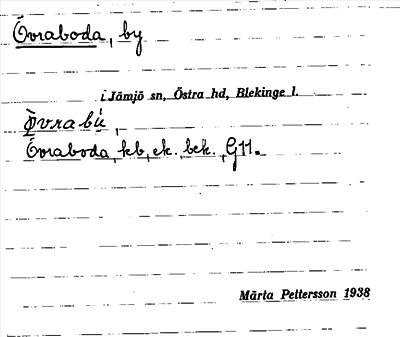 Övraboda, by
i Jämjö sn, Östra hd, Blekinge l.
Övraboda, kb, ek. bek., G11.
Märta Pettersson 1938